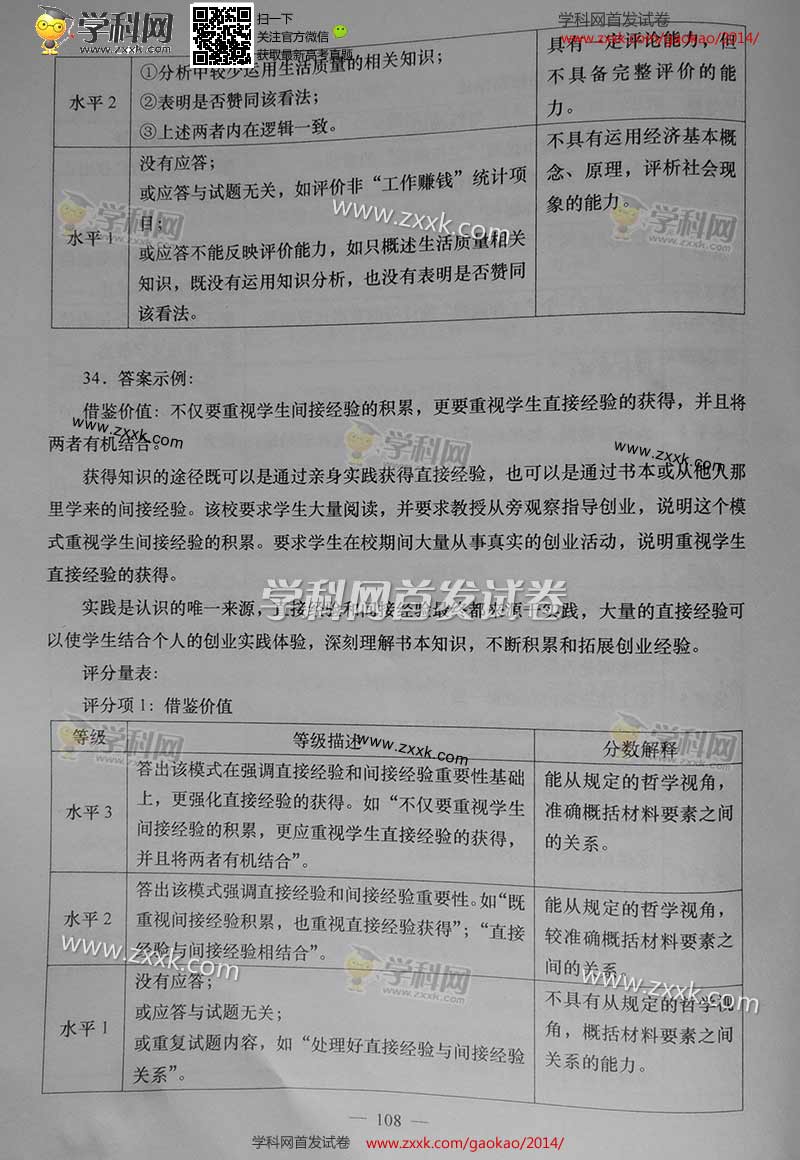 学科网
www.zxxk.com
扫一下
关注官方微信
获取最新高考真题
学科网首发试卷
www.zxxk.com/gaokao/2014/
水平 2
①分析中较少运用生活质量的相关知识；
②表明是否赞同该看法；
③上述两者内在逻辑一致。
具有一定评论能力，但
不具备完整评价的能
力。
水平 1
没有应答；
或应答与试题无关，如评价非“工作赚钱”统计项
目；
或应答不能反映评价能力，如只概述生活质量相关
知识，既没有运用知识分析，也没有表明是否赞同
该看法。
不具有运用经济基本概
念、原理，评析社会现
象的能力。
34．答案示例：
借鉴价值：不仅要重视学生间接经验的积累，更要重视学生直接经验的获得，并且将
两者有机结合。
获得知识的途径既可以是通过亲身实践获得直接经验，也可以是通过书本或从他人那
里学来的间接经验。该校要求学生大量阅读，并要求教授从旁观察指导创业，说明这个模
式重视学生间接经验的积累。要求学生在校期间大量从事真实的创业活动，说明重视学生
直接经验的获得。
学科网首发试卷
实践是认识的唯一来源，直接经验和间接经验最终都来源于实践，大量的直接经验可
以使学生结合个人的创业实践体验，深刻理解书本知识，不断积累和拓展创业经验。
评分量表：
评分项 1：借鉴价值
等级
等级描述
分数解释
水平 3
答出该模式在强调直接经验和间接经验重要性基础
上，更强化直接经验的获得。如“不仅要重视学生
间接经验的积累，更应重视学生直接经验的获得，
并且将两者有机结合”。
能从规定的哲学视角，
准确概括材料要素之间
的关系。
水平 2
答出该模式强调直接经验和间接经验重要性。如“既
重视间接经验积累，也重视直接经验获得”；“直接
经验与间接经验相结合”。
能从规定的哲学视角，
较准确概括材料要素之
间的关系。
水平 1
没有应答；
或应答与试题无关；
或重复试题内容，如“处理好直接经验与间接经验
关系”。
不具有从规定的哲学视
角，概括材料要素之间
关系的能力。
— 108 —
学科网首发试卷
www.zxxk.com/gaokao/2014/